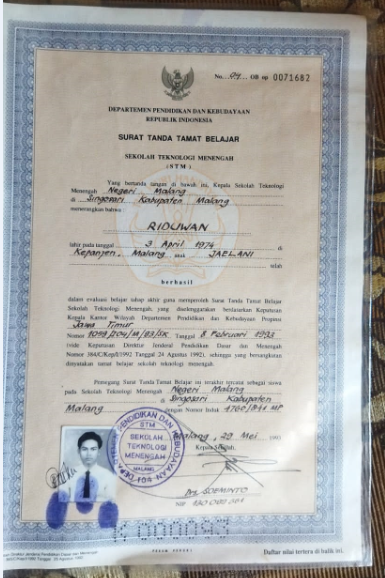 No. 04 OB op 0071682
DEPARTEMEN PENDIDIKAN DAN KEBUDAYAAN
REPUBLIK INDONESIA
SURAT TANDA TAMAT BELAJAR
SEKOLAH TEKNOLOGI MENENGAH
(STM)
Yang bertanda tangan di bawah ini, Kepala Sekolah Teknologi
Menengah Negeri Malang
di Singosari Kabupaten Malang
menerangkan bahwa
RIDUWAN
lahir pada tanggal 3 April 1974 di
Kepanjen, Malang anak JAELANI
telah
berhasil
dalam evaluasi belajar tahap akhir guna memperoleh Surat Tanda Tamat Belajar
Sekolah Teknologi Menengah, yang diselenggarakan berdasarkan Keputusan
Kepala Kantor Wilayah Departemen Pendidikan dan Kebudayaan Propinsi
Jawa Timur
Nomor Tanggal 8 Februari 1993
(vide Keputusan Direktur Jenderal Pendidikan Dasar dan Menengah
Nomor 384/C/Kep/I/1992 Tanggal 24 Agustus 1992), sehingga yang bersangkutan
dinyatakan tamat belajar sekolah teknologi menengah.
Pemegang Surat Tanda Tamat Belajar ini terakhir tercatat sebagai siswa
pada Sekolah Teknologi Menengah Negeri Malang
di Singosari Kabupaten
Malang dengan Nomor Induk
Malang, 29 Mei 1993
Kepala Sekolah,
DEPARTEMEN PENDIDIKAN DAN KEBUDAYAAN
STM
SEKOLAH
TEKNOLOGI
MENENGAH
MALANG
Drs. SOEMINTO
NIP.
Daftar nilai tertera di balik ini.